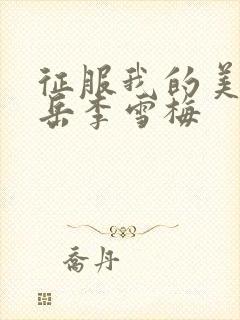 征服我的美
岳李雪梅
乔丹